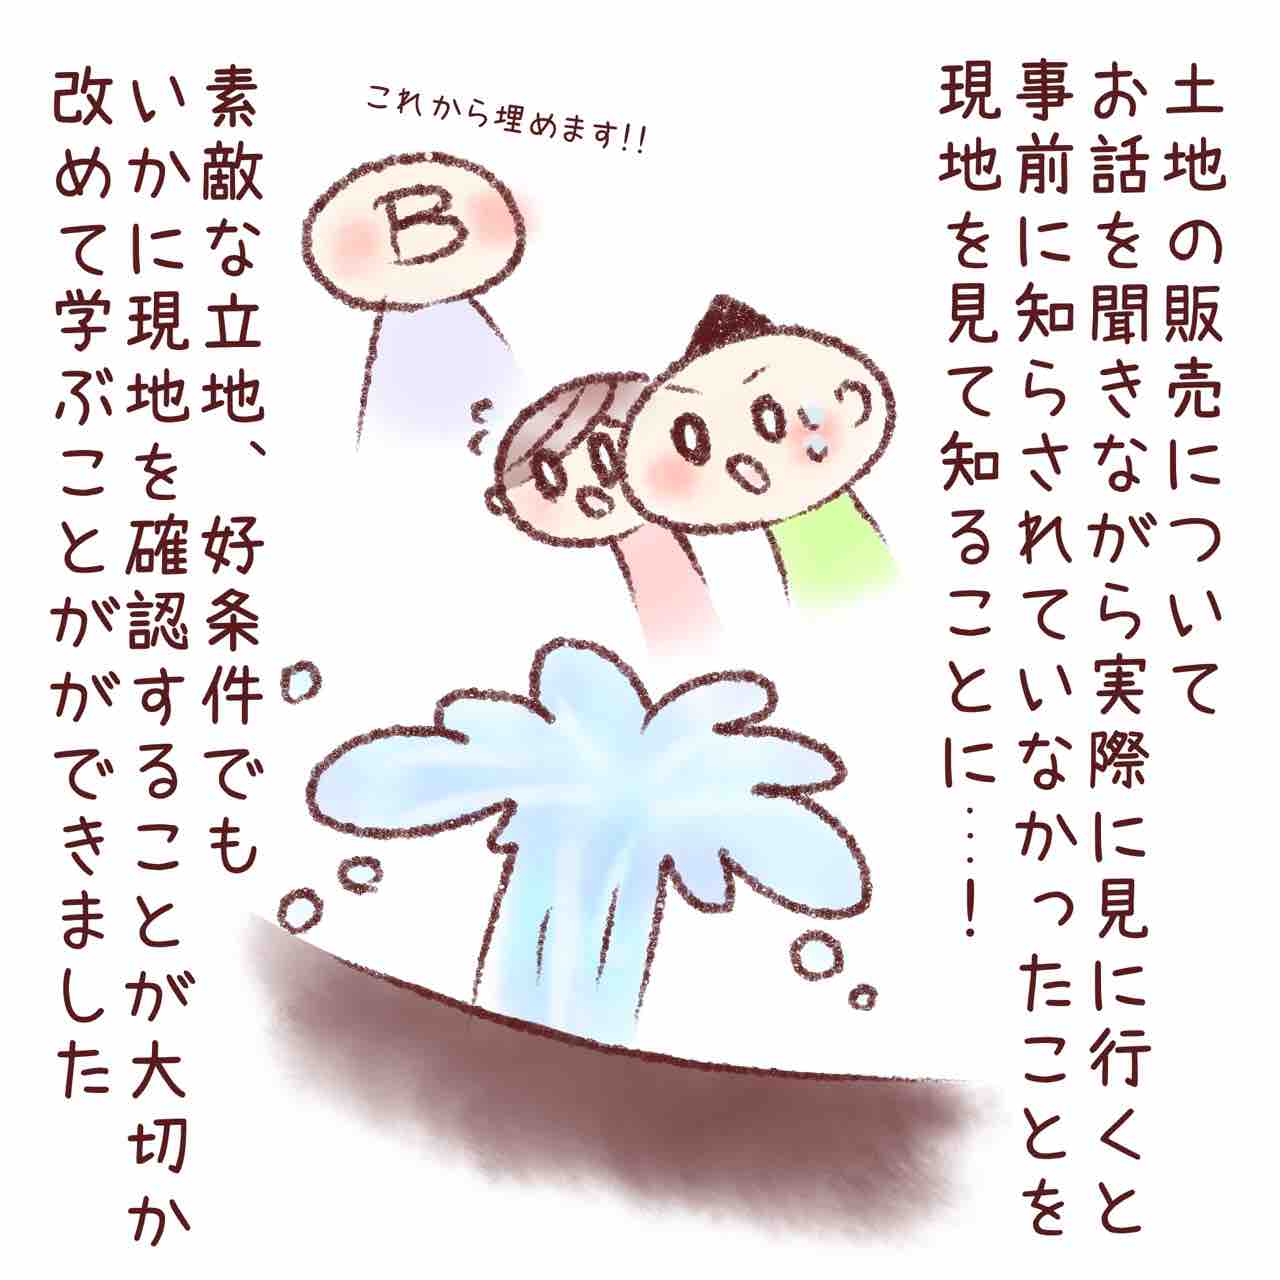 土地の販売について
お話を聞きながら実際に見に行くと
事前に知らされていなかったことを
現地を見て知ることに…！
これから埋めます!!
B
素敵な立地、好条件でも
いかに現地を確認することが大切か
改めて学ぶことがができました